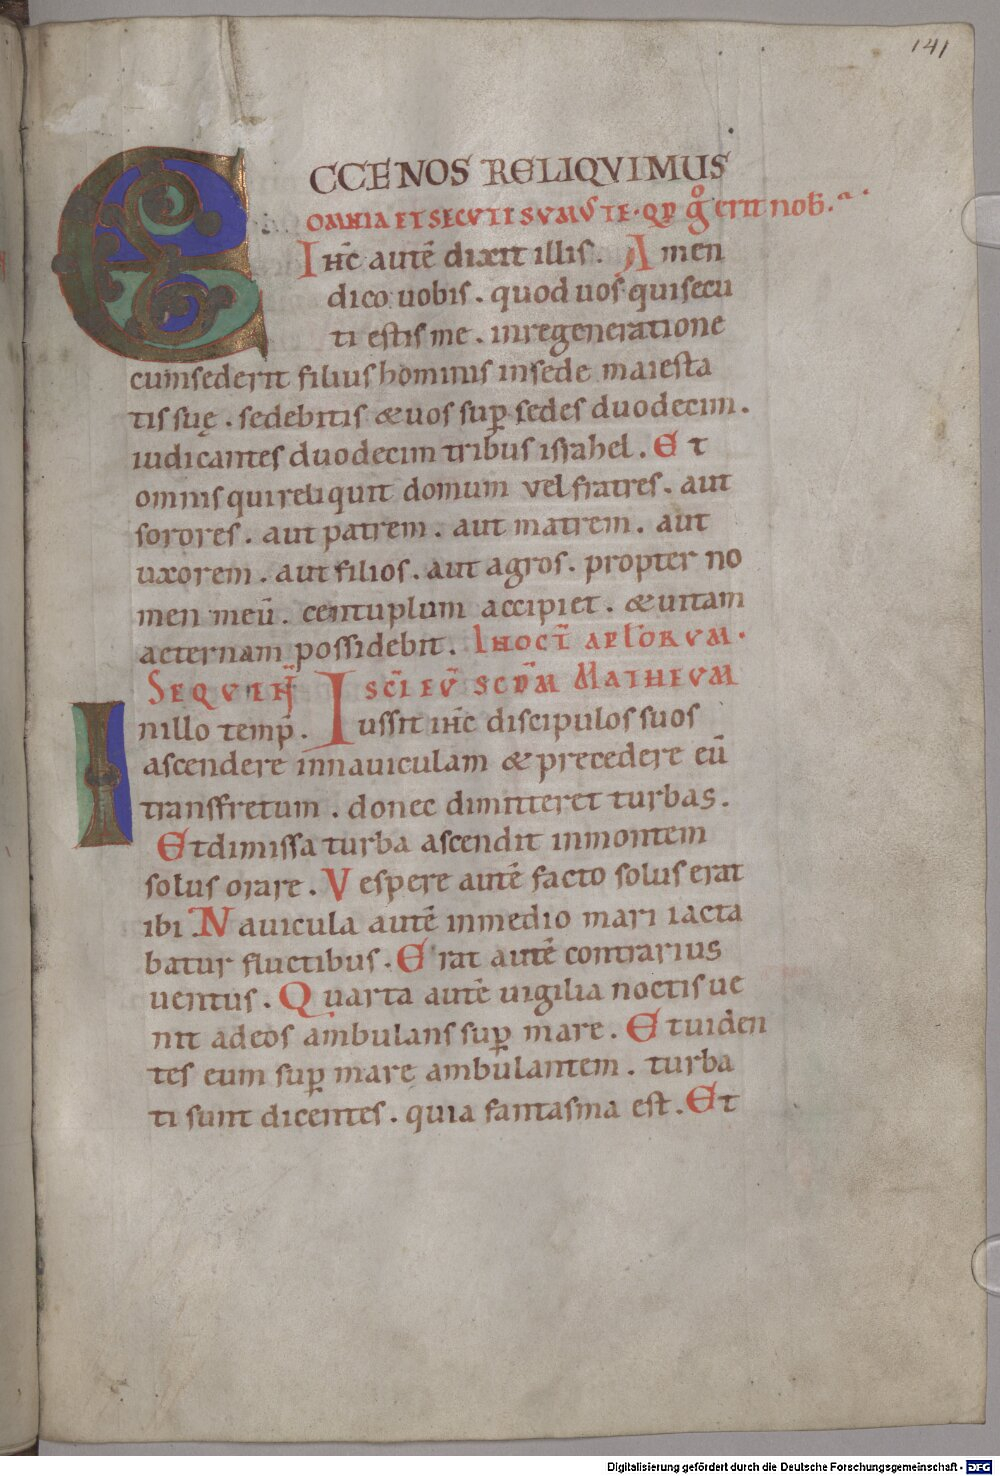 141
ECCE NOS RELIQVIMUS
OMNIA ET SECVTI SVMVˢ TE · QD g̊ erit nob̄.
Ihc̄ autē dixit illis. Amen
dico uobis. quod uos qui secu
ti estis me. in regeneratione
cum sederit filius hominis in sede maiesta
tis suę. sedebitis & uos sup̄ sedes duodecim.
iudicantes duodecim tribus israhel. Et
omnis qui reliquit domum vel fratres. aut
sorores. aut patrem. aut matrem. aut
uxorem. aut filios. aut agros. propter no
men meū. centuplum accipiet. & uitam
aeternam possidebit. IN OCT̄ APL̄ORVM.
SEQVENT̄ SC̄I EV̄ SCDM̄ MATHEVM
In illo temp̄. Iussit ihc̄ discipulos suos
ascendere in nauiculam & precedere eū
trans fretum. donec dimitteret turbas.
Et dimissa turba ascendit in montem
solus orare. Vespere autē facto solus erat
ibi. Nauicula autē in medio mari iacta
batur fluctibus. Erat autē contrarius
uentus. Quarta autē uigilia noctis ue
nit ad eos ambulans sup̄ mare. Et uiden
tes eum sup̄ mare ambulantem. turba
ti sunt dicentes. quia fantasma est. Et
Digitalisierung gefördert durch die Deutsche Forschungsgemeinschaft - DFG